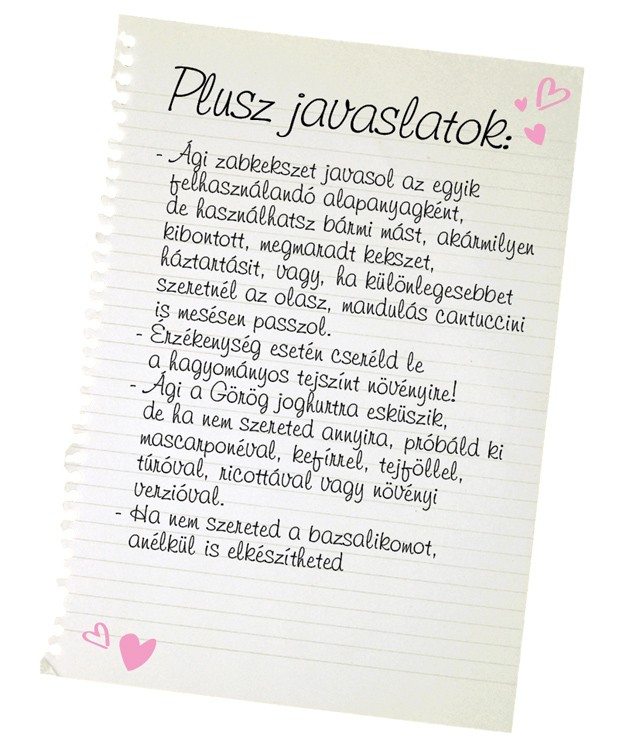 Plusz javaslatok:
- Ági zabkekszet javasol az egyik
felhasználandó alapanyagként,
de használhatsz bármi mást, akármilyen
kibontott, megmaradt kekszet,
háztartásit, vagy, ha különlegesebbet
szeretnél az olasz, mandulás cantuccini
is mesésen passzol.
- Érzékenység esetén cseréld le
a hagyományos tejszínt növényire!
- Ági a Görög joghurtra esküszik,
de ha nem szereted annyira, próbáld ki
mascarponéval, kefírrel, tejföllel,
túróval, ricottával vagy növényi
verzióval.
- Ha nem szereted a bazsalikomot,
anélkül is elkészítheted